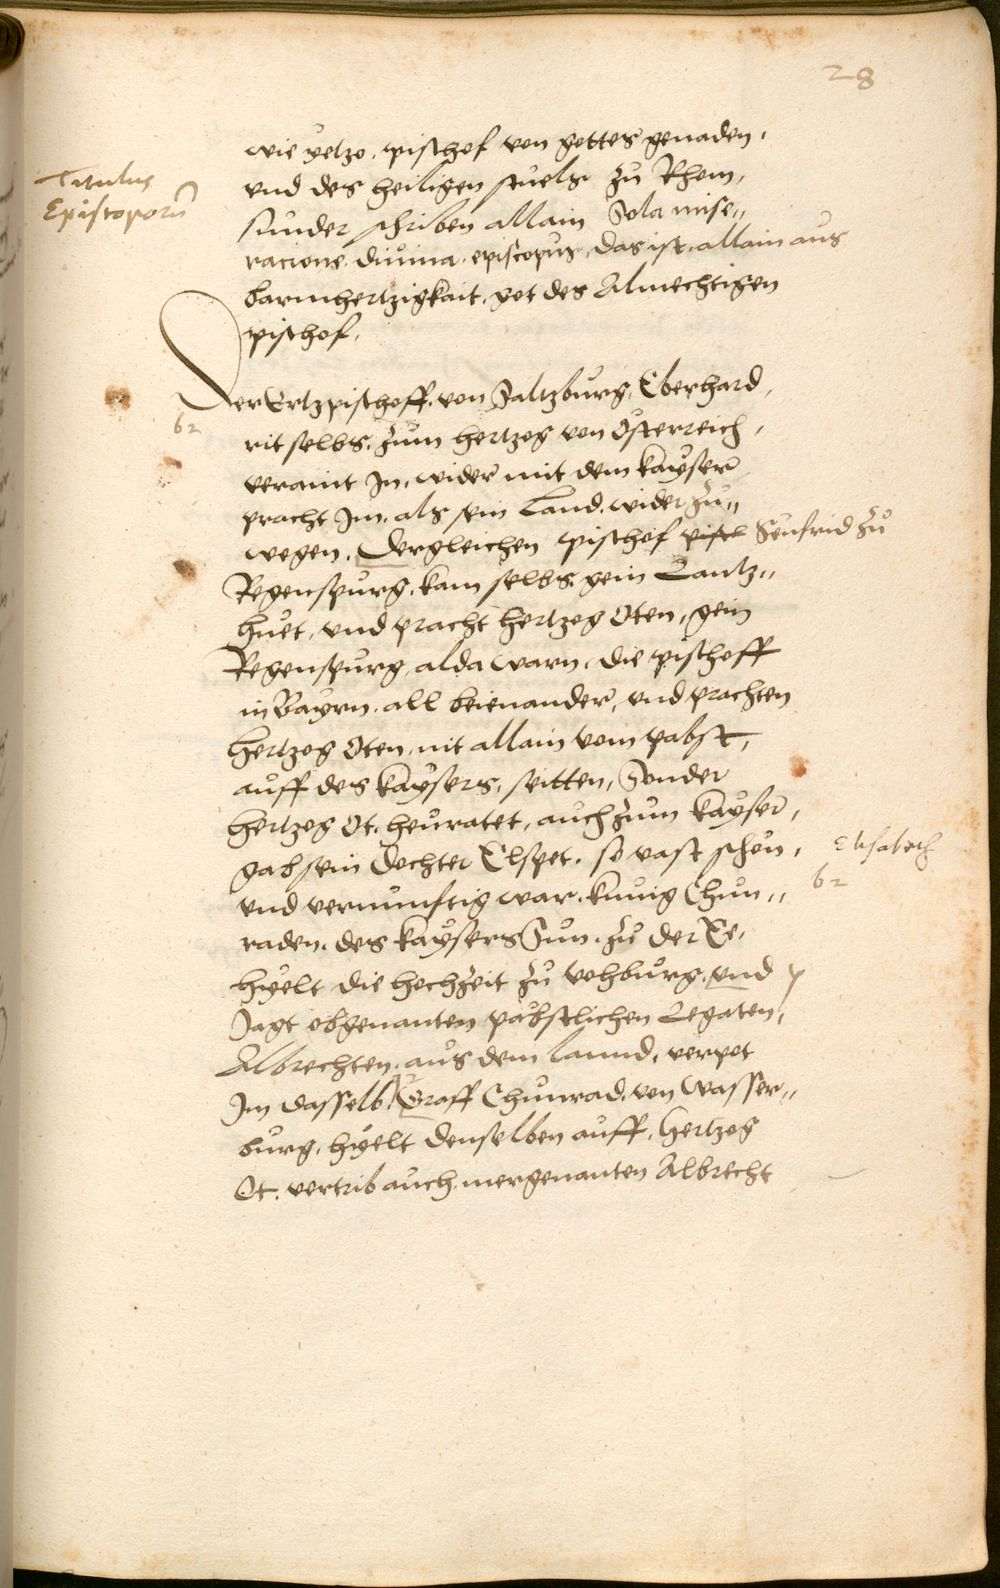 28
wie yetzo. pischof von gottes genaden,
Titulus
Episcoporū
vnd des heiligen stuels zu Rhom,
sunder schriben allain Sola mise„
racione. diuina. episcopus, das ist, allain aus
barmhertzigkait, got des Almechtigen
pischof.
Der Ertzpischoff, von Saltzburg, Eberhard,
62
rit selbs, zum hertzog von Österreich,
veraint In, wider mit dem kayser
pracht Im. als sein Land, wider zu„
wegen. Dergleichen pischof Seufrid zu
Regenspurg, kam selbs gein Lantz„
huet, vnd pracht hertzog Oten, gein
Regenspurg, alda warn, die pischoff
in Bayrn. all beienander, vnd prachten
hertzog Oten, nit allain vom pabst,
auff des kaysers, seitten, Sonder
hertzog Ot, heuratet, auch zum kayser,
gab sein dochter Elspet. so vast schön,
Elisabeth
62
vnd vernunftig war. kunig Chun„
raden. des kaysers Sun. zu der Ee,
hyelt die hochzeit zu vohburg, vnd
Jagt obgenanten päbstlichen Legaten,
Albrechten. aus dem lannd, verpot
Im dasselb, Graff Chunrad, von Wasser„
burg, hyelt denselben auff, hertzog
Ot, vertrib auch mergenanten Albrecht